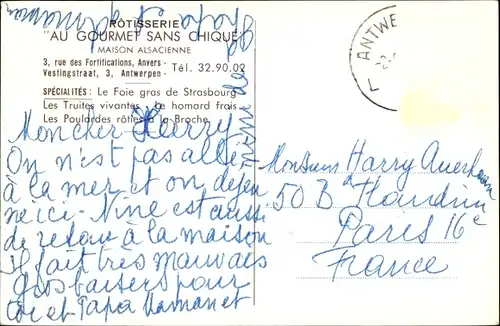 RÔTISSERIE
"AU GOURMET SANS CHIQUÉ"
MAISON ALSACIENNE
3, rue des Fortifications, Anvers - Tél. 32.90.02
Vestingstraat, 3, Antwerpen -
SPÉCIALITÉS: Le Foie gras de Strasbourg
Les Truites vivantes - Le homard frais
Les Poulardes rôties à la Broche
Mon cher Harry
On n'est pas allé
à la mer et on dejeu
ne ici. Nine est aussi
de retour à la maison
il fait très mauvais
gros baisers pour
toi et Papa Maman et
ANTWE
Monsieur Harry
50 B
Paris 16e
France